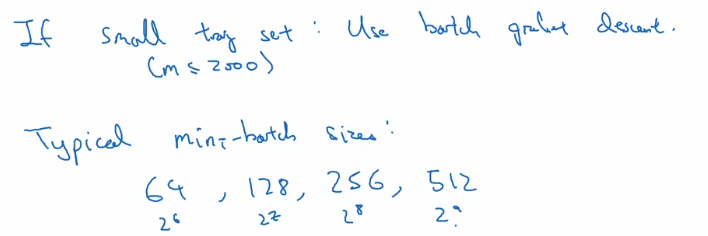 If small trag set : Use batch gradient descent.
(m ≤ 2000)
Typical mini-batch sizes:
64 , 128, 256, 512
2⁶ 2⁷ 2⁸ 2⁹